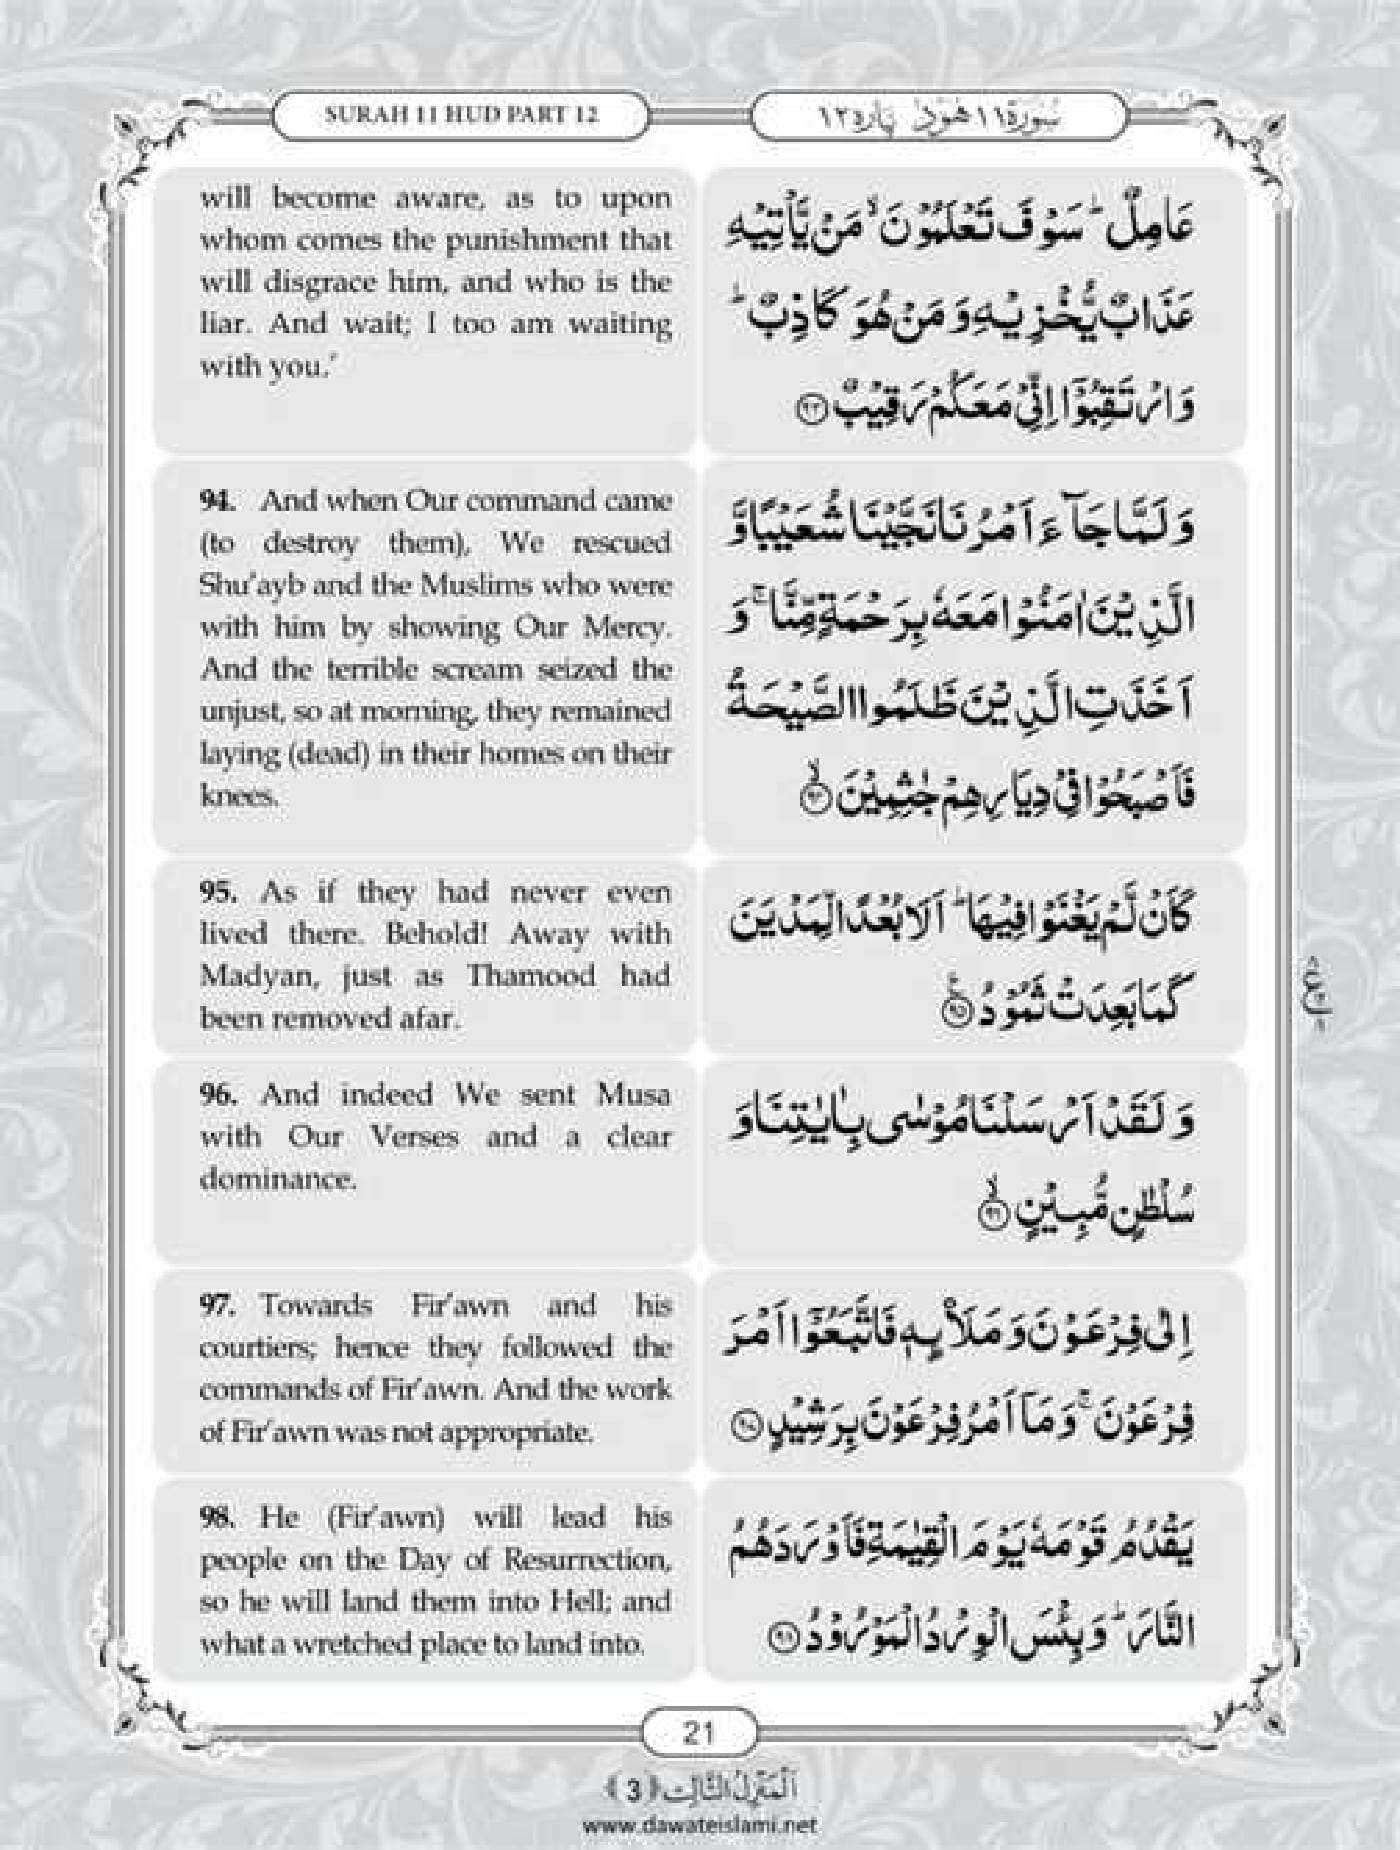 SURAH 11 HUD PART 12
سُوْرَۃ ١١ هُوْد پارہ ١٢
will become aware, as to upon
whom comes the punishment that
will disgrace him, and who is the
liar. And wait; I too am waiting
with you.’
عَامِلٌ ؕ سَوْفَ تَعْلَمُوْنَ ۙ مَنْ يَّاْتِيْهِ
عَذَابٌ يُّخْزِيْهِ وَ مَنْ هُوَ كَاذِبٌ ؕ
وَ ارْتَقِبُوْۤا اِنِّيْ مَعَكُمْ رَقِيْبٌ ﴿۹۳﴾
94. And when Our command came
(to destroy them), We rescued
Shu’ayb and the Muslims who were
with him by showing Our Mercy.
And the terrible scream seized the
unjust, so at morning, they remained
laying (dead) in their homes on their
knees.
وَ لَمَّا جَآءَ اَمْرُنَا نَجَّيْنَا شُعَيْبًا وَّ
الَّذِيْنَ اٰمَنُوْا مَعَهٗ بِرَحْمَةٍ مِّنَّا ۚ وَ
اَخَذَتِ الَّذِيْنَ ظَلَمُوا الصَّيْحَةُ
فَاَصْبَحُوْا فِيْ دِيَارِهِمْ جٰثِمِيْنَ ﴿ۙ۹۴﴾
95. As if they had never even
lived there. Behold! Away with
Madyan, just as Thamood had
been removed afar.
كَاَنْ لَّمْ يَغْنَوْا فِيْهَا ؕ اَلَا بُعْدًا لِّمَدْيَنَ
كَمَا بَعِدَتْ ثَمُوْدُ ﴿۹۵﴾
96. And indeed We sent Musa
with Our Verses and a clear
dominance.
وَ لَقَدْ اَرْسَلْنَا مُوْسٰى بِاٰيٰتِنَا وَ
سُلْطٰنٍ مُّبِيْنٍ ﴿ۙ۹۶﴾
97. Towards Fir’awn and his
courtiers; hence they followed the
commands of Fir’awn. And the work
of Fir’awn was not appropriate.
اِلٰى فِرْعَوْنَ وَ مَلَا۠ئِهٖ فَاتَّبَعُوْۤا اَمْرَ
فِرْعَوْنَ ۚ وَ مَاۤ اَمْرُ فِرْعَوْنَ بِرَشِيْدٍ ﴿۹۷﴾
98. He (Fir’awn) will lead his
people on the Day of Resurrection,
so he will land them into Hell; and
what a wretched place to land into.
يَقْدُمُ قَوْمَهٗ يَوْمَ الْقِيٰمَةِ فَاَوْرَدَهُمُ
النَّارَ ؕ وَ بِئْسَ الْوِرْدُ الْمَوْرُوْدُ ﴿۹۸﴾
21
اَلْمَنْزِلُ الثَّالِث ﴿3﴾
www.dawateislami.net